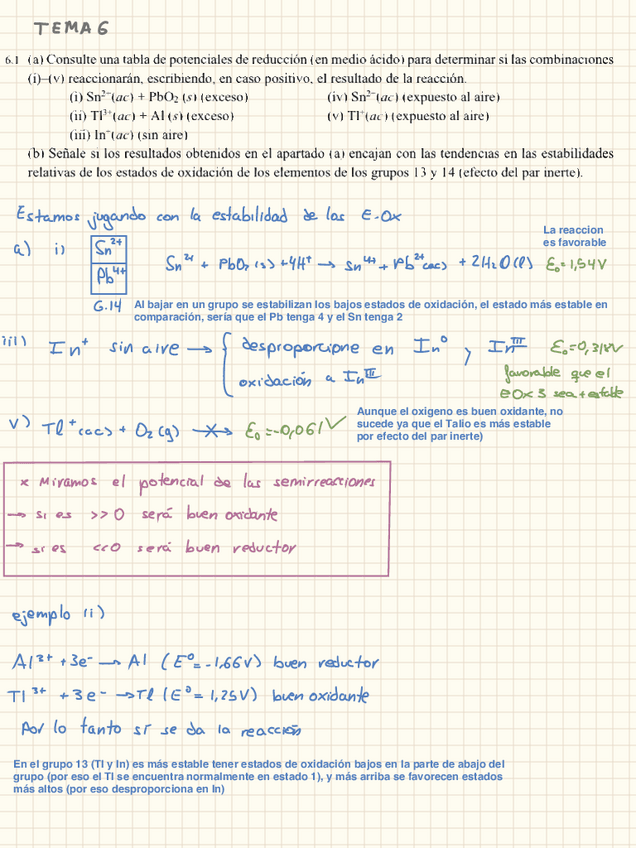 TEMA 6
6.1 (a) Consulte una tabla de potenciales de reducción (en medio ácido) para determinar si las combinaciones
(i)–(v) reaccionarán, escribiendo, en caso positivo, el resultado de la reacción.
(i) Sn²⁺(ac) + PbO₂ (s) (exceso) (iv) Sn²⁺(ac) (expuesto al aire)
(ii) Tl³⁺(ac) + Al (s) (exceso) (v) Tl⁺(ac) (expuesto al aire)
(iii) In⁺(ac) (sin aire)
(b) Señale si los resultados obtenidos en el apartado (a) encajan con las tendencias en las estabilidades
relativas de los estados de oxidación de los elementos de los grupos 13 y 14 (efecto del par inerte).
Estamos jugando con la estabilidad de los E.Ox
La reaccion
es favorable
a) i) Sn²⁺ Sn²⁺ + PbO₂ (s) + 4H⁺ → Sn⁴⁺ + Pb²⁺(ac) + 2H₂O (l) E₀ = 1,54V
Pb⁴⁺
G.14 Al bajar en un grupo se estabilizan los bajos estados de oxidación, el estado más estable en
comparación, sería que el Pb tenga 4 y el Sn tenga 2
iii) In⁺ sin aire → { desproporcione en In⁰ y Inᴵᴵᴵ E₀=0,318V
oxidación a Inᴵᴵᴵ
favorable que el
EOx 3 sea + estable
v) Tl⁺(ac) + O₂ (g) ↛ E₀ = -0,061V ✓
Aunque el oxigeno es buen oxidante, no
sucede ya que el Talio es más estable
por efecto del par inerte)
* Miramos el potencial de las semirreacciones
→ si es >> 0 será buen oxidante
→ si es << 0 será buen reductor
ejemplo ii)
Al³⁺ + 3e⁻ → Al (E⁰ = -1,66V) buen reductor
Tl³⁺ + 3e⁻ → Tl (E⁰ = 1,25V) buen oxidante
Por lo tanto sí se da la reacción
En el grupo 13 (Tl y In) es más estable tener estados de oxidación bajos en la parte de abajo del
grupo (por eso el Tl se encuentra normalmente en estado 1), y más arriba se favorecen estados
más altos (por eso desproporciona en In)